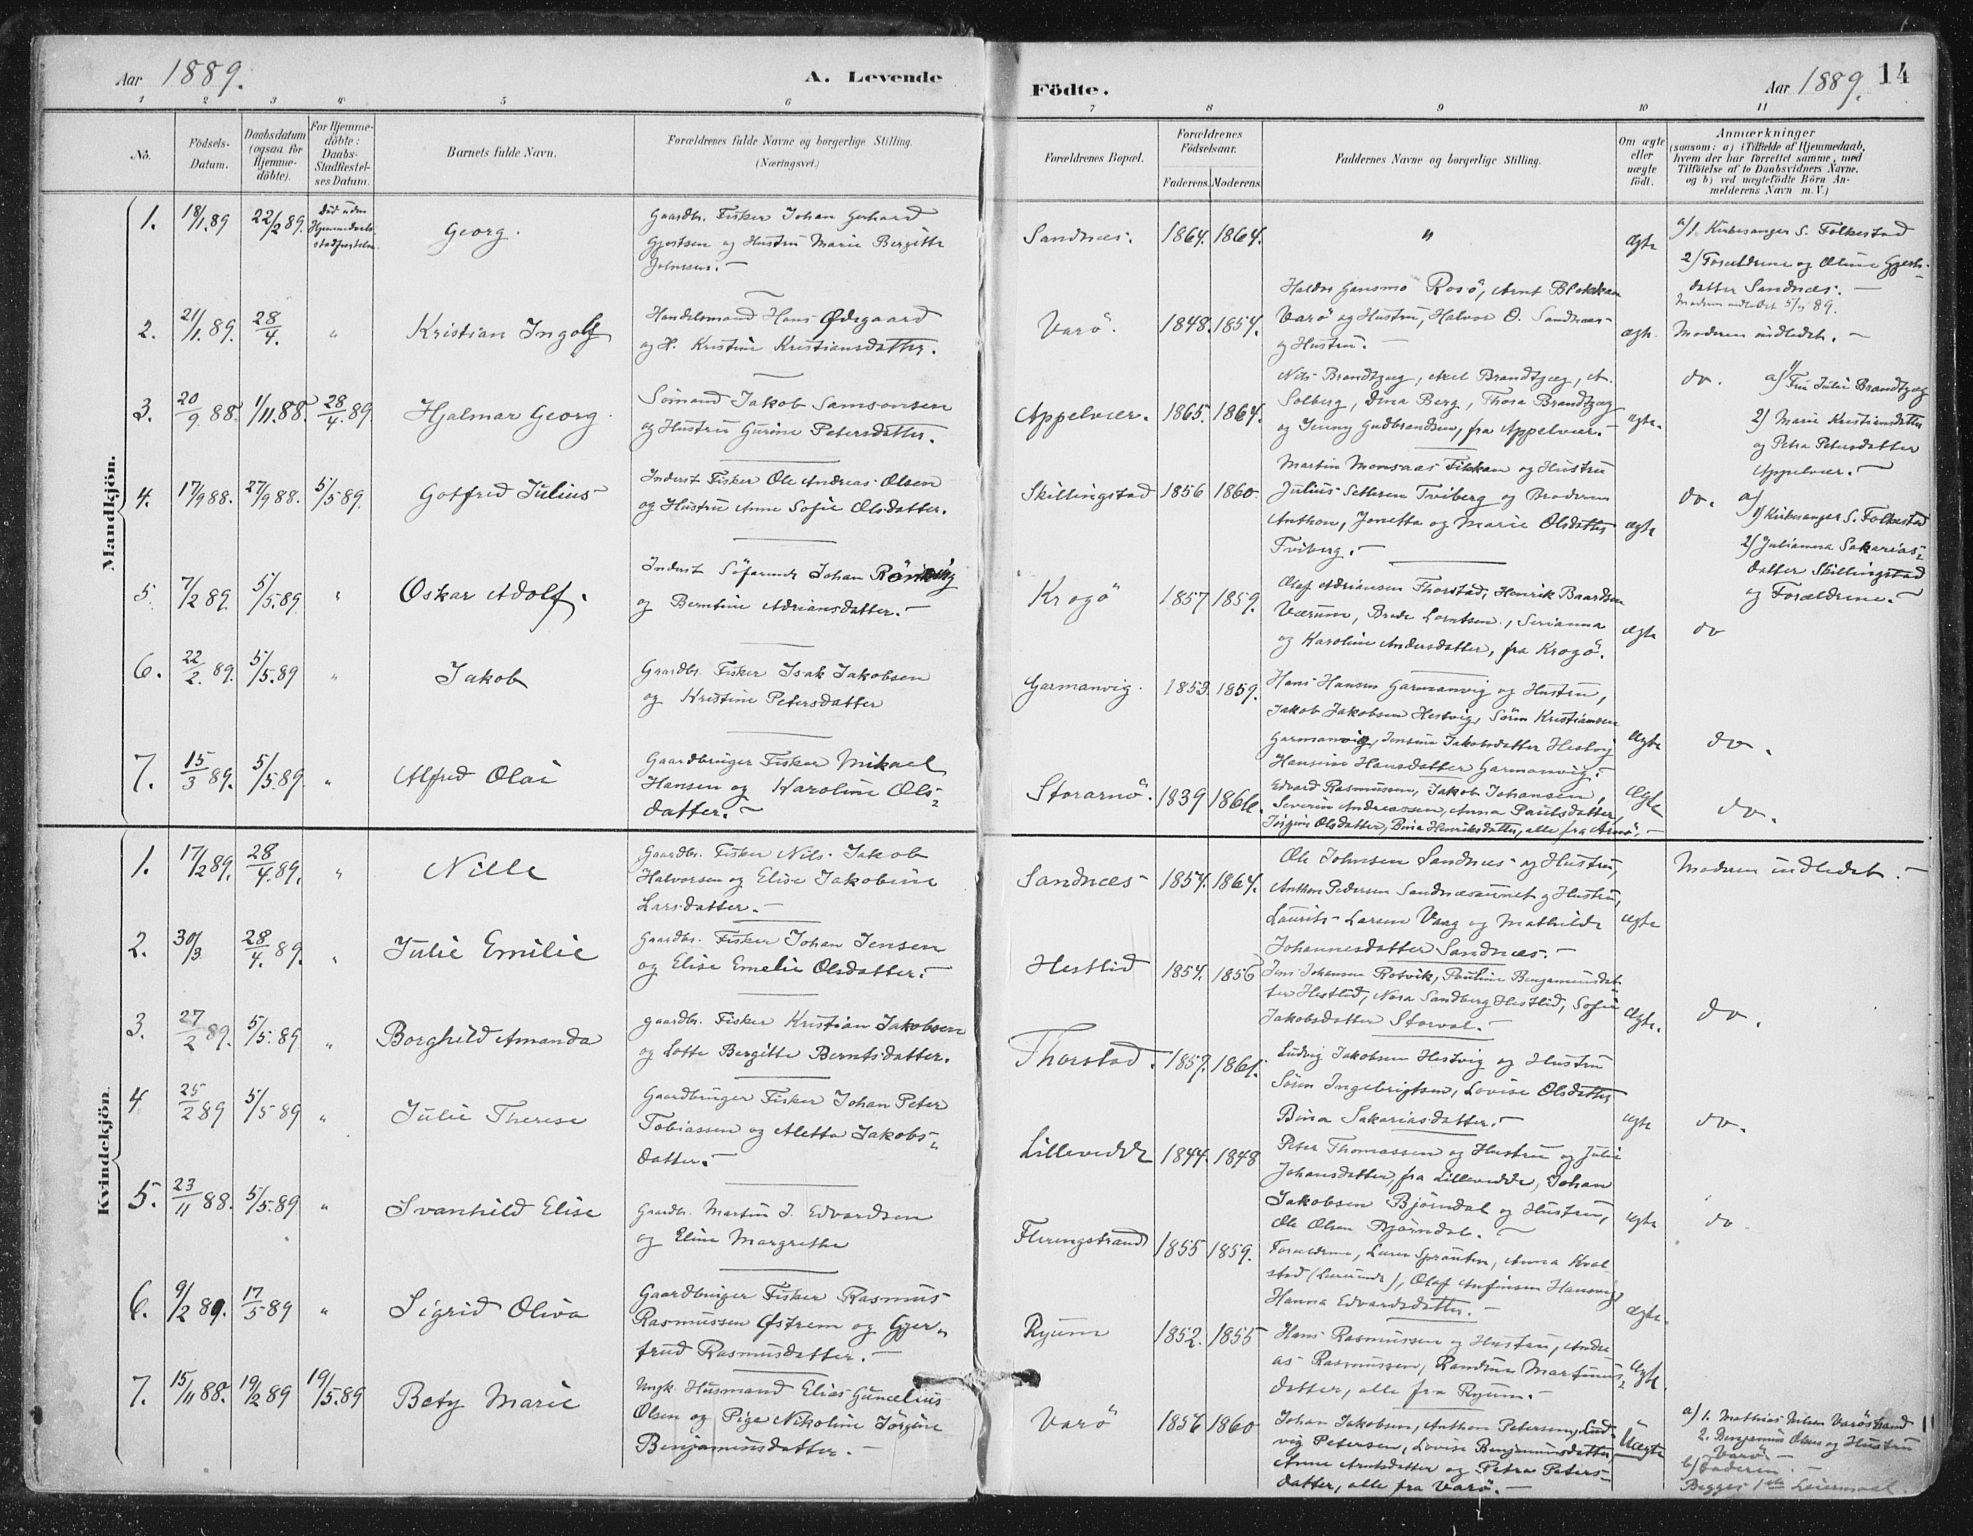 Aar 1889.
A. Levende
Födte.
Aar 1889.
14
1 2 3 4 5 6 7 8 9 10 11
No.
Födsels-
Datum.
Daabsdatum
(ogsaa for
Hjemme-
döbte).
For Hjemme-
döbte:
Daabs-
Stadfæstel-
ses Datum.
Barnets fulde Navn.
Forældrenes fulde Navne og borgerlige Stilling.
(Næringsvei.)
Forældrenes Bopæl.
Forældrenes
Födselsaar.
Faderens. Moderens.
Faddernes Navne og borgerlige Stilling.
Om ægte
eller
uægte
födt.
Anmærkninger
(saasom: a) i Tilfælde af Hjemmedaab,
hvem der har forrettet samme, med
Tilföielse af to Daabsvidners Navne.
og b) ved uægtefödte Börn An-
melderens Navn m. V.)
Mandkjön.
1. 18/1.89 22/2 89. Död uden
Georg.
Gaardbr. Fisker Johan Gerhard
Gjertsen og Hustru Marie Bergitte
Johnsen.
Sandnæs. 1864. 1864. " ægte
a/1. Kirkesanger S. Folkestad
2/ Forældrene og Oline Gjerts-
datter Sandnæs.
Moderen indledet 5/5 89.
2. 21/1.89. 28/4. "
Kristian Ingolf
Handelsmand Hans Ödegaard
og H. Kristine Kristiansdatter.
Varö. 1848. 1854.
Rosö, Arnt Blakkan
Varö og Hustru, Halvor O. Sandnæs
og Hustru.
ægte. Moderen indledet.
3. 20/9 88. 1/11.88. 28/4.89
Hjalmar Georg.
Sömand Jakob Samsonsen
og Hustru Gurine Petersdatter.
Appelvær. 1865. 1864.
Nils Brandtzæg, Axel Brandtzæg, A.
Solberg, Dina Berg, Thora Brandtzæg
og Jenny Gudbrandsen, fra Appelvær.
ægte. do. a/ 1/ Fru Julie Brandtzæg
2/ Marie Kristiansdatter
og Petra Petersdatter
Appelvær.
4. 17/9 88. 27/9 88. 5/5 89.
Gotfred Julius
Inderst Fisker Ole Andreas Olsen
og Hustru Anne Sofie Olsdatter.
Skillingstad 1856 1860.
Martin Monsaas Fikkan og Hustru
Julius Tviberg og Broderen
Anthon, Jonetta og Marie Olsdatter
Tviberg.
ægte do. a/
1/ Kirkesanger S. Folkestad
2/ Sakarias-
datter Skillingstad
og Forældrene.
5. 7/2 89. 5/5.89. "
Oskar Adolf.
Inderst Söfarende Johan
og Berntine Adriansdatter.
Krogö 1857 1859.
Olaf Adriansen Thorstad, Henrik Baardsen
Værum, Brede Lorntsen, Serianna
og Karoline Andersdatter, fra Krogö.
ægte do
6. 22/2. 89. 5/5.89 "
Jakob
Gaardbr. Fisker Isak Jakobsen
og Kristine Petersdatter
Garmanvig. 1853. 1859.
Hans Hansen Garmanvig og Hustru,
Jakob Jakobsen Hestvig, Sören Kristiansen
Garmanvig, Jensine Jakobsdatter Hestvig
Hansine Hansdatter Garmanvig.
ægte do.
7. 15/3 89. 5/5.89. "
Alfred Olai
Gaardbruger Fisker Mikael
Hansen og Karoline Ols-
datter.
Storarnö. 1839 1866.
Edvard Rasmussen, Jakob Johansen,
Severin Andreassen, Anna Paulsdatter,
Jörgine Olsdatter, Bina Henriksdatter, alle fra Arnö.
ægte do.
Kvindekjön.
1. 17/2 89. 28/4.89. "
Nille
Gaardbr. Fisker Nils Jakob
Halvorsen og Elise Jakobine
Larsdatter.
Sandnæs 1854. 1864.
Ole Johnsen Sandnæs og Hustru,
Anthon Pedersen Sandnæsaunet og Hustru,
Laurits Larsen Vaag og Mathilde
Johannesdatter Sandnæs.
ægte Moderen indledet.
2. 30/3 28/4. 89. "
Julie Emilie
Gaardbr. Fisker Johan Jensen
og Elise Emelie Olsdatter.
Hestlid 1854. 1856
Jens Johansen Rosvik, Pauline Benjaminsdat-
ter Hestlid, Nora Sandberg Hestlid, Sofie
Jakobsdatter Storval.
ægte. do.
3. 27/2 89. 5/5.89 "
Borghild Amanda
Gaardbr. Fisker Kristian Jakobsen
og Lotte Bergitte Berntsdatter.
Thorstad. 1857. 1861.
Ludvig Jakobsen Hestvig og Hustru
Sören Ingebrigtsen, Lovise Olsdatter
Bina Sakariasdatter.
ægte do.
4 25/2 89 5/5 89 "
Julie Therese
Gaardbruger Fisker Johan Peter
Tobiassen og Aletta Jakobs-
datter.
Lillevedde 1844. 1848
Peter Thomassen og Hustru og Julie
Johansdatter, fra Lillevedde, Johan
Jakobsen Björndal og Hustru,
Ole Olsen Björndal.
ægte do
5. 23/11 88. 5/5.89 "
Svanhild Elise
Gaardbr. Martin J. Edvardsen
og Eline Margrethe
Flerengstrand 1855 1859.
Forældrene, Anna
Olaf Hansvig
Hanna Edvardsdatter.
ægte.
6. 9/2 89. 17/5 89 "
Sigrid Oliva
Gaardbruger Fisker Rasmus
Rasmussen Östrem og Gjer-
trud Rasmusdatter.
Ryum 1852. 1855
Hans Rasmussen og Hustru, Andre
as Rasmussen, Randine Martinus-
datter, alle fra Ryum.
ægte.
7. 15/11 88. 19/2 89 19/5.89
Bety Marie
Ungk. Husmand Elias Guncelius
Olsen og Pige Nikoline Jörgine
Benjaminsdatter.
Varö 1856 1860
Johan Jakobsen, Anthon Petersen, Lud-
vig Petersen, Lovise Benjaminsdatter,
Anne Arntsdatter og Petra Peters-
datter, alle fra Varö.
Uægte
a/ 1. Mathias Nilsen Varöstrand
2. Benjamin Olsen og Hustru
Varö
b/ Faderen
Begges 1ste Leiermaal